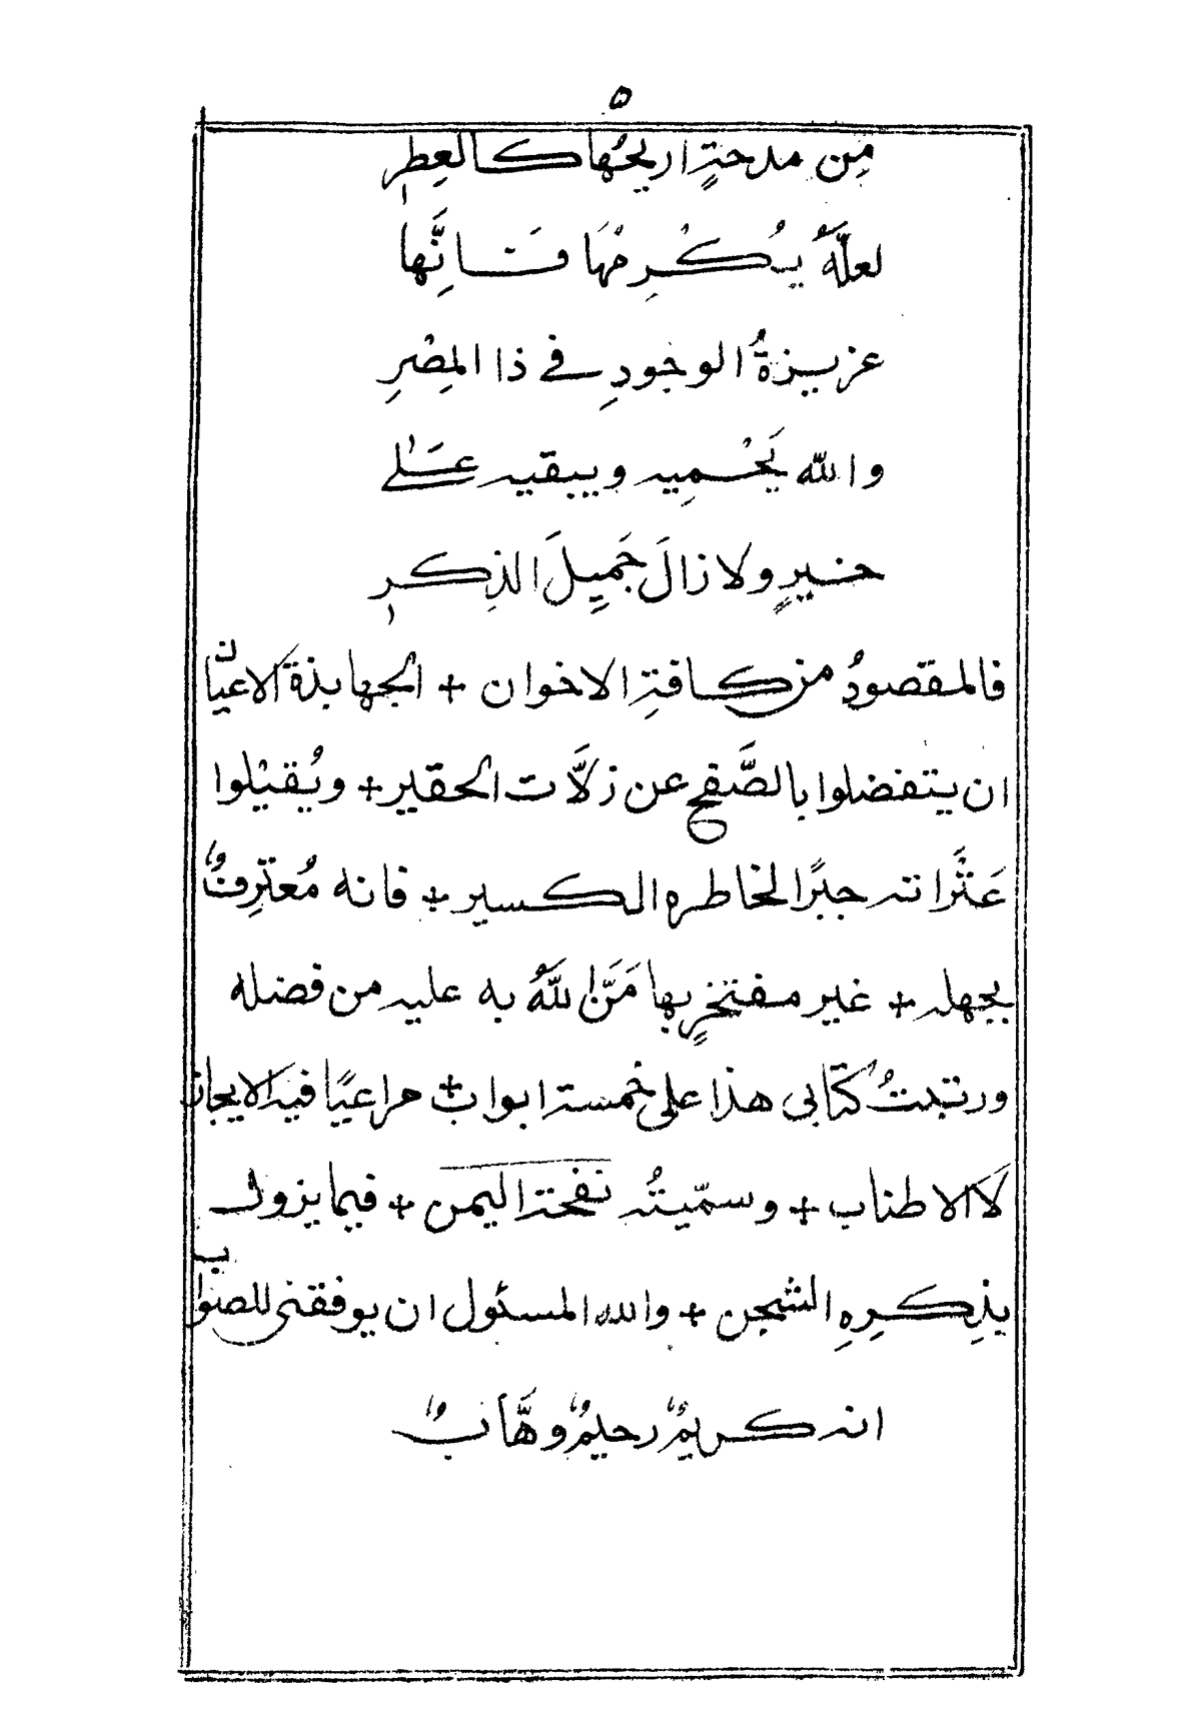 ٥
مِن مدحةٍ اريجُها كالعِطرِ
لعلَّهُ يُكْرِمُهَا فَانَّها
عزيزةُ الوجودِ في ذا المِصْرِ
والله يَحْمِيه ويبقيه عَلى
خيرٍ ولا زالَ جَمِيلَ الذِكرِ
فالمقصودُ من كافةِ الاخوان + الجهابذة الاعيان
ان يتفضلوا بالصَّفح عن زلَّات الحقير + ويُقيْلوا
عَثَراته جبرًا لخاطره الكسير + فانه مُعترِفٌ
بجهله + غير مفتخرٍ بها مَنَّ اللهُ به عليه من فضله
ورتبتُ كتابي هذا على خمسة ابواب + مراعيًا فيه الايجاز
لا الاطناب + وسمّيتُه نفحة اليمن + فيما يزول
بذِكرِهِ الشجن + والله المسئول ان يوفقني للصواب
انه كريمٌ رحيمٌ وهَّابٌ